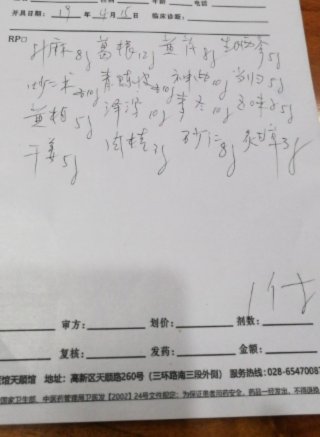 开具日期：19 年 4 月 15 日 临床诊断：
RP
升麻8g 葛根12g 黄芪8g 5g
炒术10g 青陈皮各10g 神曲10g 当归5g
黄柏5g 泽泻10g 麦冬10g 五味子5g
干姜5g 肉桂2g 砂仁8g 炙草3g
1付
审方： 划价： 剂数：
复核： 发药： 金额：
馆天顺馆 地址：高新区天顺路260号（三环路南三段外侧） 服务热线：028-6547008
国家卫生部、中医药管理局卫医发【2002】24号文件规定：为保证患者用药安全，药品一经发出，不得退换